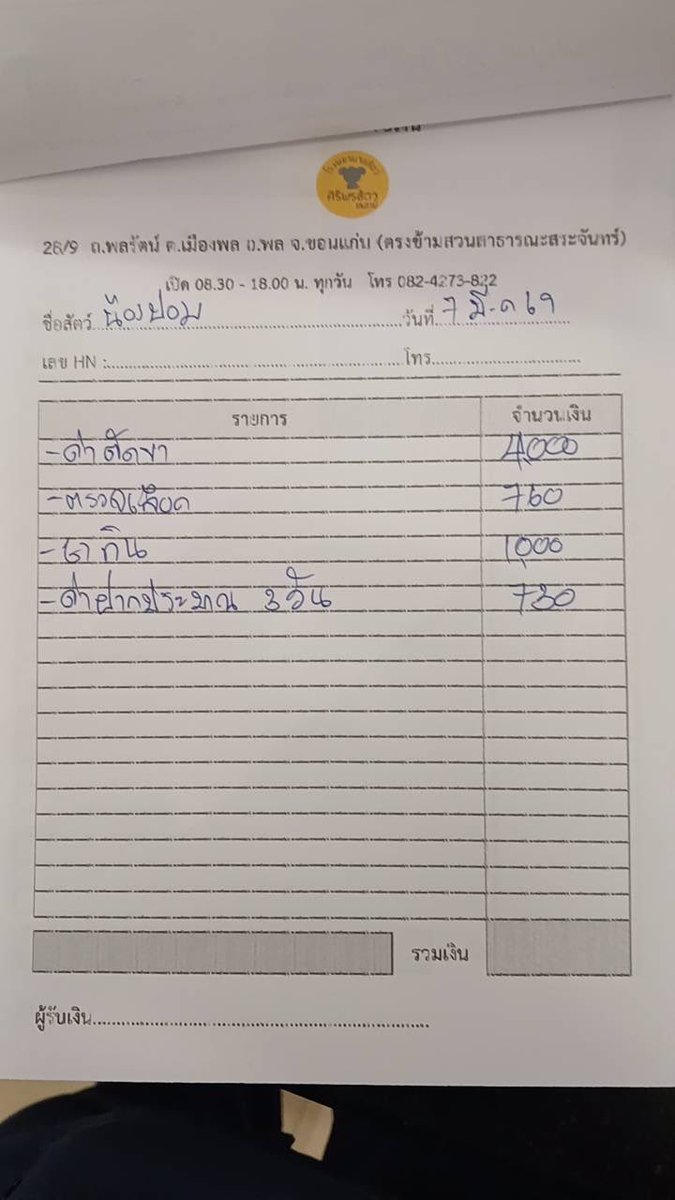 โรงพยาบาลสัตว์
ศิริพรสัตว
26/9 ถ.พลรัตน์ ต.เมืองพล อ.พล จ.ขอนแก่น (ตรงข้ามสวนสาธารณะสระจันทร์)
เปิด 08.30 - 18.00 น. ทุกวัน โทร 082-4273-822
ชื่อสัตว์ น้องปอม วันที่ 7 มี.ค 69
เลข HN : โทร
รายการ จำนวนเงิน
- ค่าตัดขา 4,000
- ตรวจเลือด 760
- ยากิน 1,000
- ค่าฝากประมาณ 3 วัน 730
รวมเงิน
ผู้รับเงิน